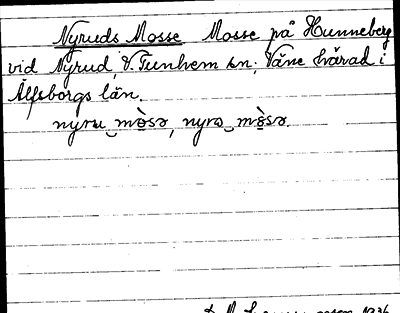 Nyruds Mosse Mosse på Hunneberg
vid Nyrud, V. Tunhem sn; Väne härad i
Älfsborgs län.
nyrɯ ‿ mòsə, nyrə ‿ mòsə.
1936